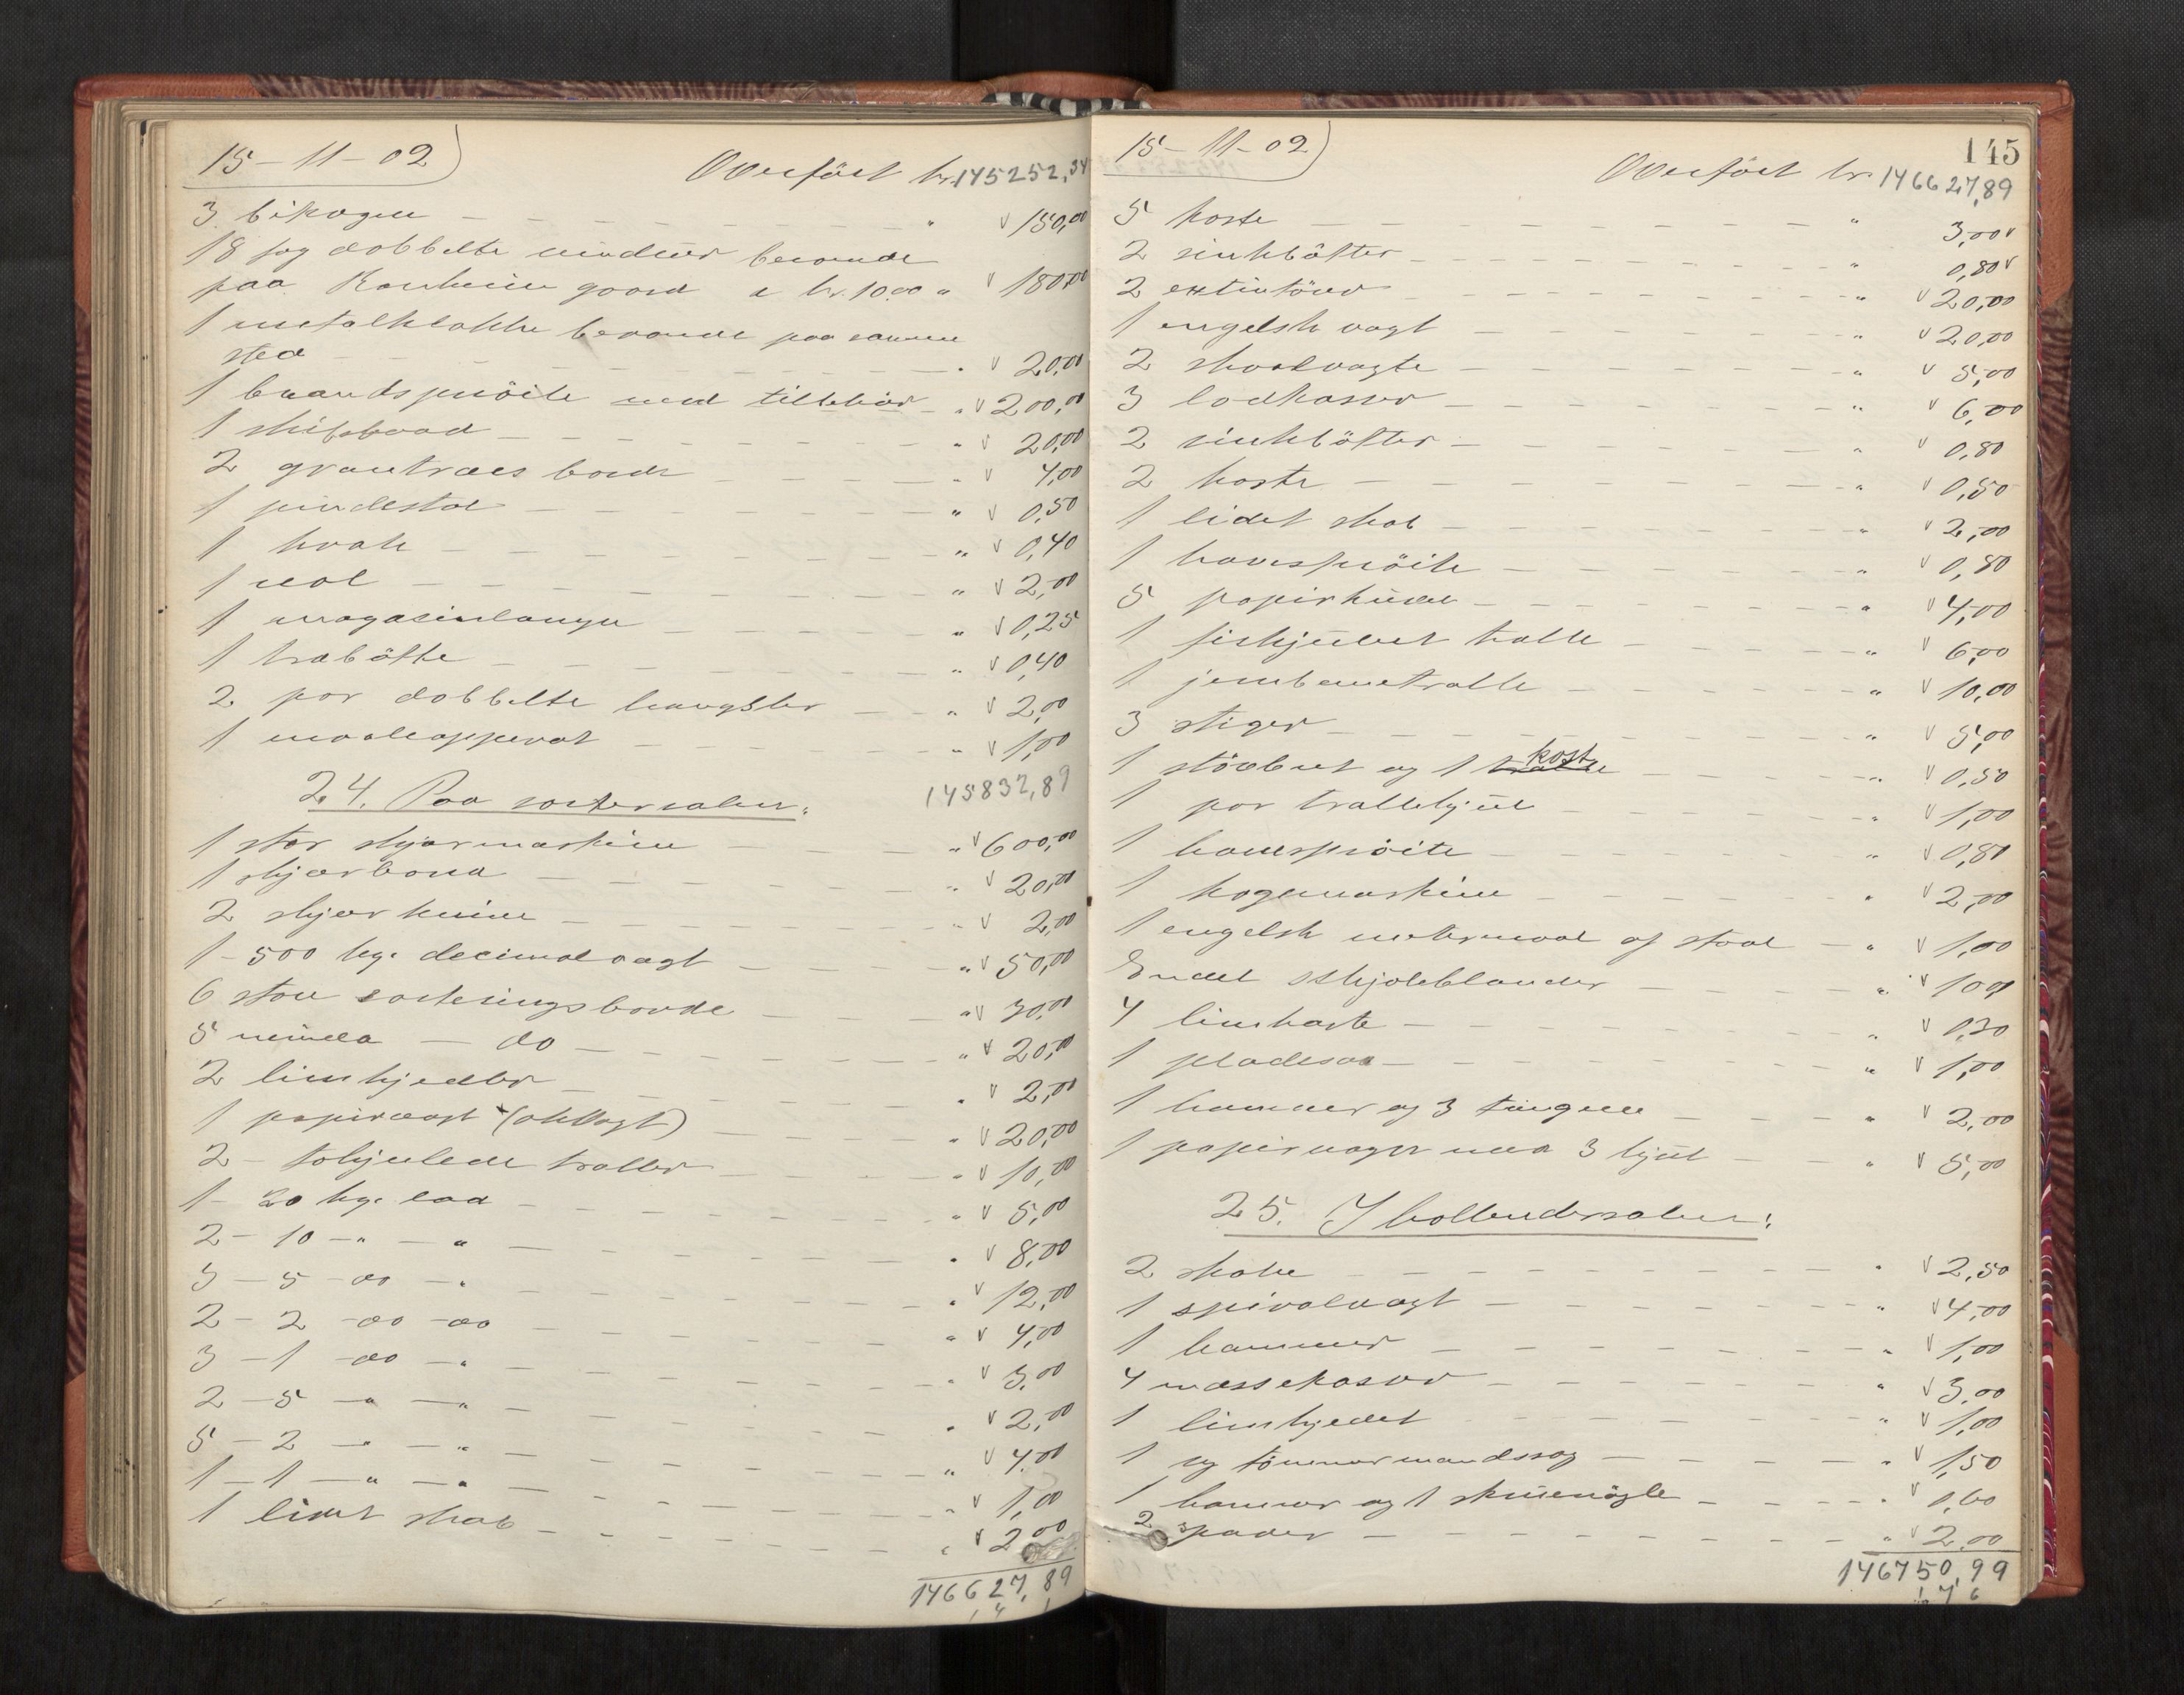 15-11-02) Overført kr. 145252,34
3 bikager — — — — " v 150,00
18 fag dobbelte vinduer beroende
paa Ranheim gaard a kr. 10.00 " v 180,00
1 metalklokke beroende paa samme
sted — — — — " v 20,00
1 brandsprøite med tilbehør — " v 200,00
1 skibsbaad — — — — " v 20,00
2 grantræes borde — — — " v 4,00
1 pindestol — — — — " v 0,50
1 krak — — — — " v 0,40
1 — — — — " v 2,00
1 magasinlampe — — — " v 0,25
1 træbøtte — — — — " v 0,40
2 par dobbelte hængsler — — " v 2,00
1 maaleapperat — — — " v 1,00
24. Paa sortersalen: 145832,89
1 stor skjærmaskine — — " v 600,00
1 skjærbord — — — — " v 20,00
2 skjær knive — — — — " v 2,00
1 - 500 kg. decimalvægt — — — " v 50,00
6 store sorteringsborde — — " v 30,00
5 mindre — do — — — — " v 20,00
2 limkjedler — — — — " v 2,00
1 papirvægt — — " v 20,00
2 - tohjulede traller — — " v 10,00
1 - 20 kg. lod — — — — " v 5,00
2 - 10 - " - " — — — — " v 8,00
3 - 5 - do - " — — — — " v 12,00
2 - 2 - do - do — — — — " v 4,00
3 - 1 - do - " — — — — " v 3,00
2 - 5 - " - " — — — — " v 2,00
5 - 2 - " - " — — — — " v 4,00
1 - 1 - " - " — — — — " v 1,00
1 lidet skab — — — — " v 2,00
146627,89
15-11-02) 145
Overført kr. 146627,89
5 koste — — — — " 3,00 v
2 sinkbøtter — — — — " 0,80 v
2 extintører — — — — " v 20,00
1 engelsk vægt — — — — " v 20,00
2 skaalvægte — — — — " v 5,00
3 lodkasser — — — — " v 6,00
2 sinkbøtter — — — — " v 0,80
2 koste — — — — " v 0,50
1 lidet skab — — — — " v 2,00
1 havesprøite — — — — " v 0,80
5 papirkniver — — — — " v 4,00
1 firhjulet tralle — — — " v 6,00
1 jernbanetralle — — — " v 10,00
3 stiger — — — — " v 5,00
1 støvbret og 1 kost — — " v 0,50
1 par trallehjul — — — " v 1,00
1 havesprøite — — — — " v 0,80
1 kogemaskine — — — — " v 2,00
1 engelsk metermaal af staal — " v 1,00
Endel — — — " v 1,00
4 limkoste — — — — " v 0,20
1 pladesax — — — — " v 1,00
1 hammer og 3 — — " v 2,00
1 papirvogn med 3 hjul — — " v 5,00
25. I hollendersalen:
2 skabe — — — — " v 2,50
1 spiralvægt — — — — " v 4,00
1 hammer — — — — " v 1,00
4 massekasser — — — — " v 3,00
1 limkjedel — — — — " v 1,00
1 ny tømmermandssag — — — " v 1,50
1 hammer og 1 skruenøgle — — " v 0,60
2 spader — — — — " v 2,00
146750,99